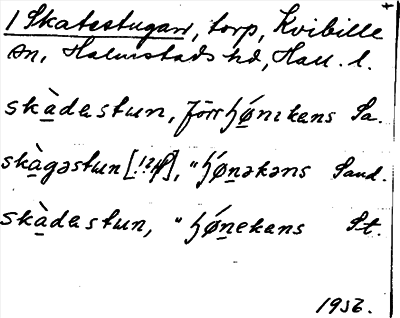 1 Skatestugan, torp, Kvibille
sn, Halmstads hd, Hall. l.
skàdastun, förr hǿnɪkans Sa.
skàgəstun [!?], " hǿnəkəns Sand.
skàdastun, " hǿnekans St.
1956.